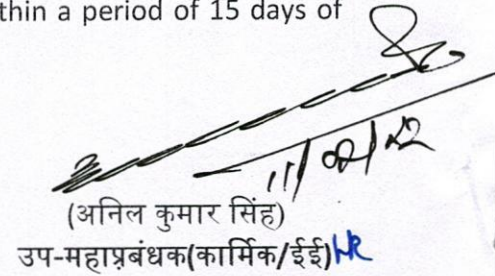 thin a period of 15 days of
11/02/22
(अनिल कुमार सिंह)
उप-महाप्रबंधक(कार्मिक/ईई)